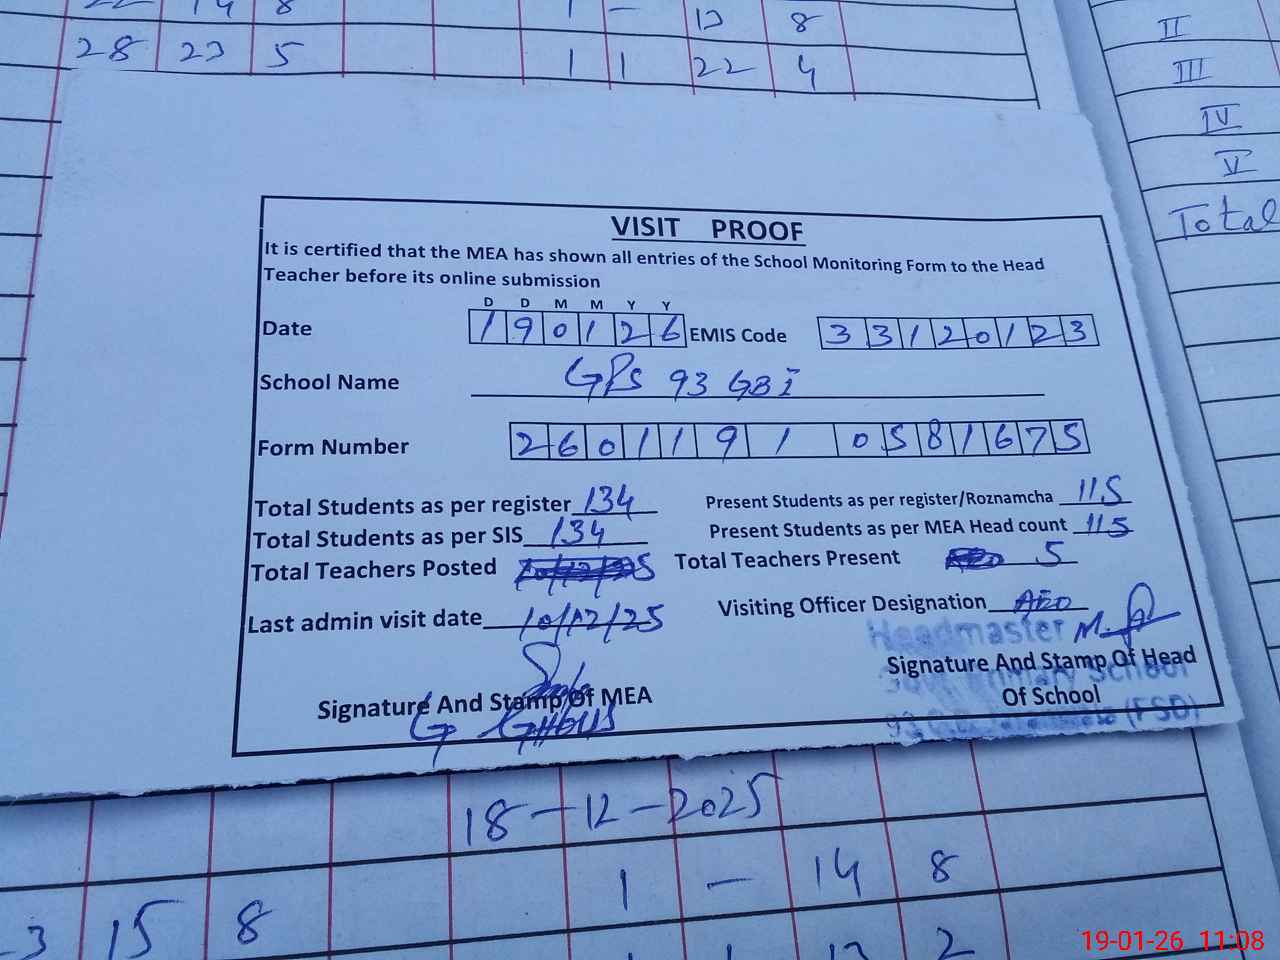 14 8 1 - 13 8
28 23 5 1 1 22 4
II
III
IV
V
Total
VISIT PROOF
It is certified that the MEA has shown all entries of the School Monitoring Form to the Head
Teacher before its online submission
D D M M Y Y
Date 190126 EMIS Code 33120123
School Name GPS 93 GB I
Form Number 2601191 0581675
Total Students as per register 134 Present Students as per register/Roznamcha 115
Total Students as per SIS 134 Present Students as per MEA Head count 115
Total Teachers Posted 5 Total Teachers Present 5
Last admin visit date 10/12/25 Visiting Officer Designation AEO
Headmaster
Signature And Stamp Of MEA Signature And Stamp Of Head
Of School
School
(FSD)
18-12-2025
1 - 14 8
3 15 8
2
19-01-26 11:08